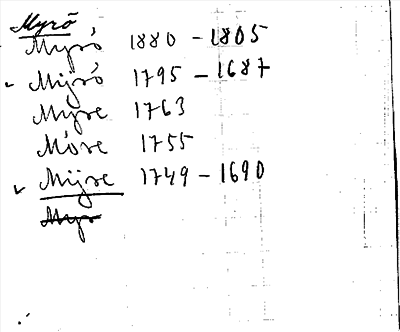 Myrõ
Myró 1880 – 1805
Mijró 1795 – 1687
Myre 1763
Móre 1755
Mijre 1749 – 1690
Myr